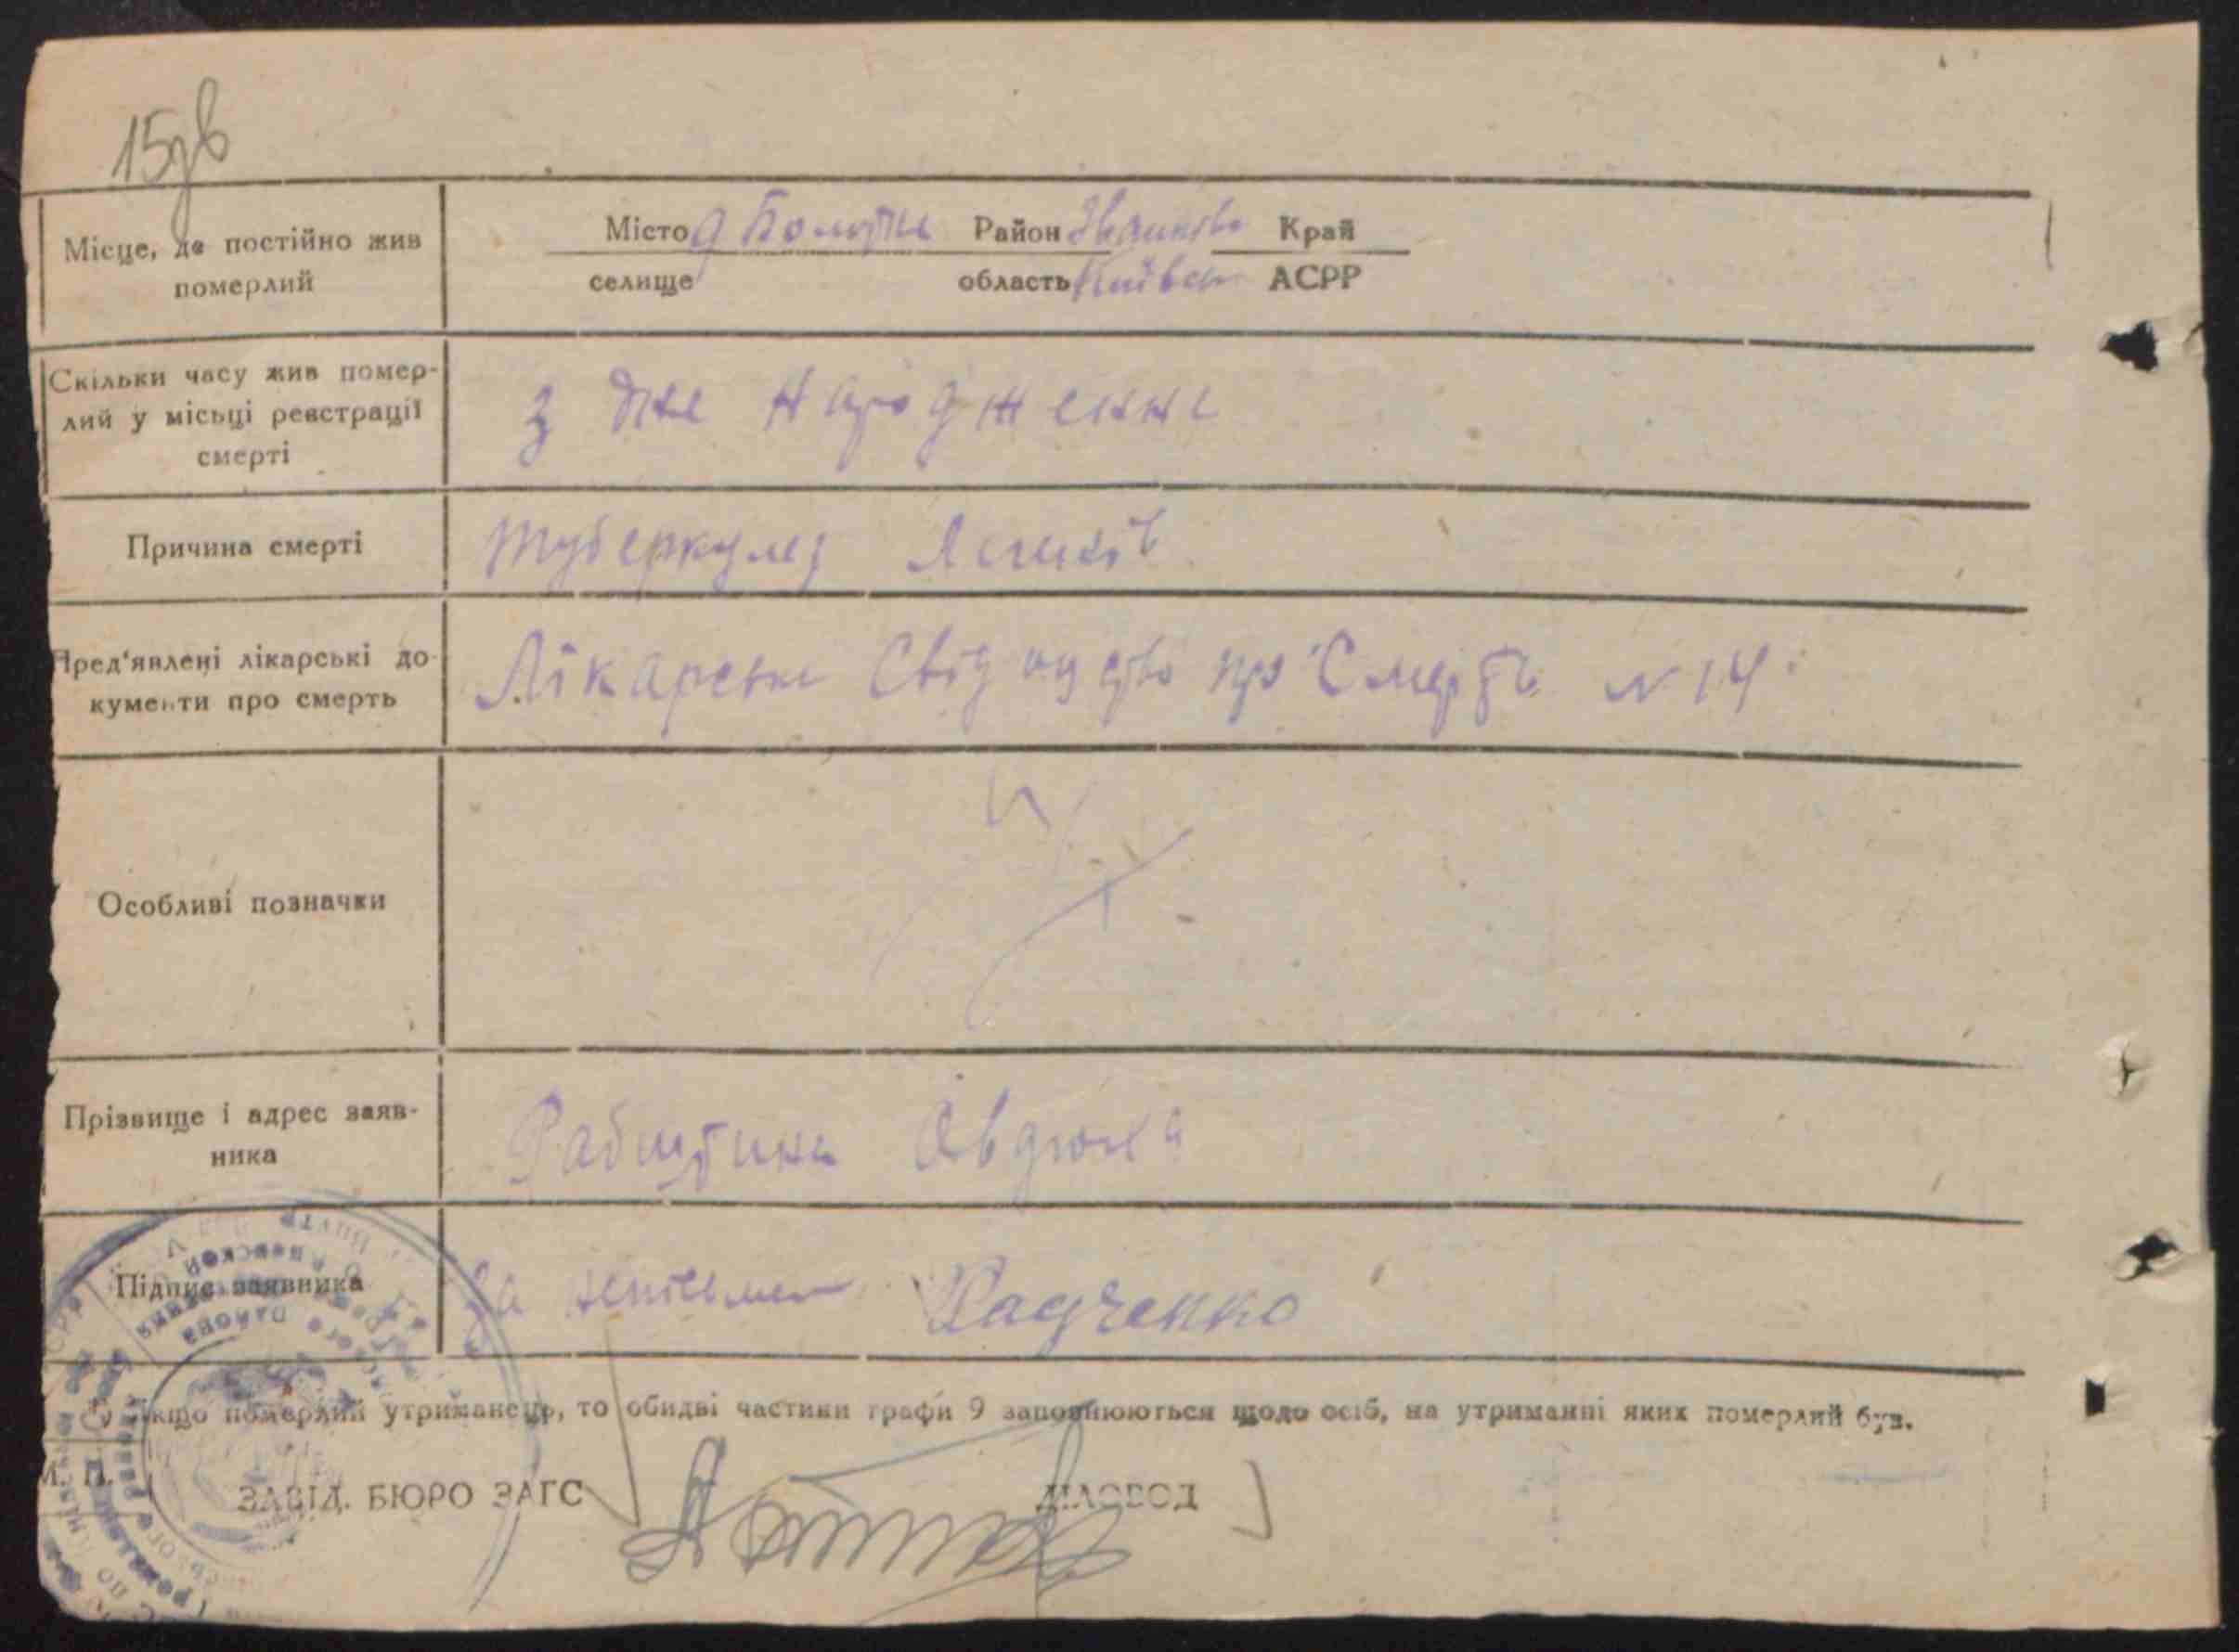 15зв
Місто д Болотня Район Іванків Край
Місце, де постійно жив померлий
селище область Київсь АСРР
Скільки часу жив помер-
лий у місьці реєстрації
смерті
з дне народження
Причина смерті
туберкулез Легенів
Пред'явлені лікарські до-
кументи про смерть
Лікарське Свідоцтво про Смерть № 14
Особливі позначки
Прізвище і адрес заяв-
ника
Підпис заявника
за Радченко
*) Якщо померлий утриманець, то обидві частини графи 9 заповнюються щодо осіб, на утриманні яких померлий був.
М. П.
ЗАВІД. БЮРО ЗАГС ДІЛОВОД